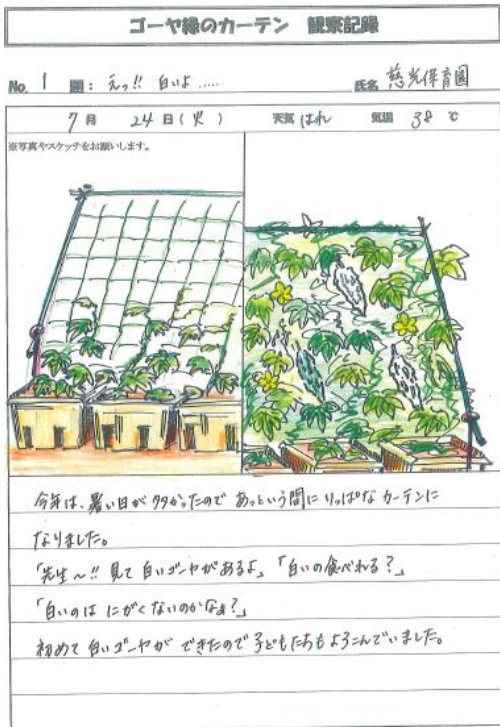 ゴーヤ緑のカーテン 観察記録
No. 1 題: えっ!! 白いよ.....
氏名 慈光保育園
7月 24日(火) 天気 はれ 気温 38 ℃
※写真やスケッチをお願いします。
今年は、暑い日が多かったので あっという間に りっぱな カーテンに
なりました。
「先生~!! 見て 白いゴーヤがあるよ」「白いの食べれる?」
「白いのは にがくないのかなぁ?」
初めて 白いゴーヤが できたので 子どもたちも よろこんでいました。